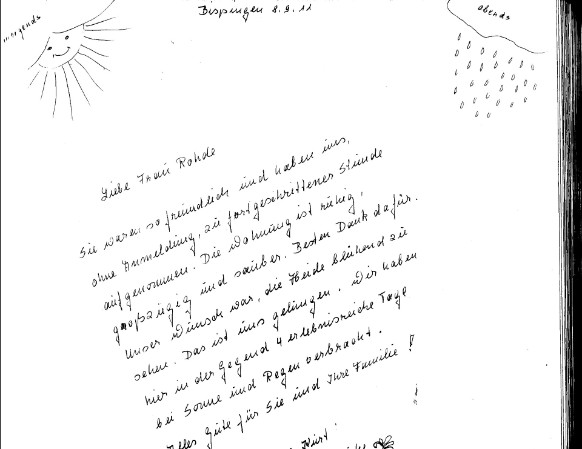 Bispingen 8.9.11
morgends
abends
Liebe Frau Rohde
Sie waren so freundlich und haben uns,
ohne Anmeldung, zu fortgeschrittener Stunde
aufgenommen. Die Wohnung ist ruhig,
großzügig und sauber. Besten Dank dafür.
Unser Wunsch war, die Heide blühend zu
sehen. Das ist uns gelungen. Wir haben
hier in der Gegend 4 erlebnisreiche Tage
bei Sonne und Regen verbracht.
Alles Gute für Sie und Ihre Familie!